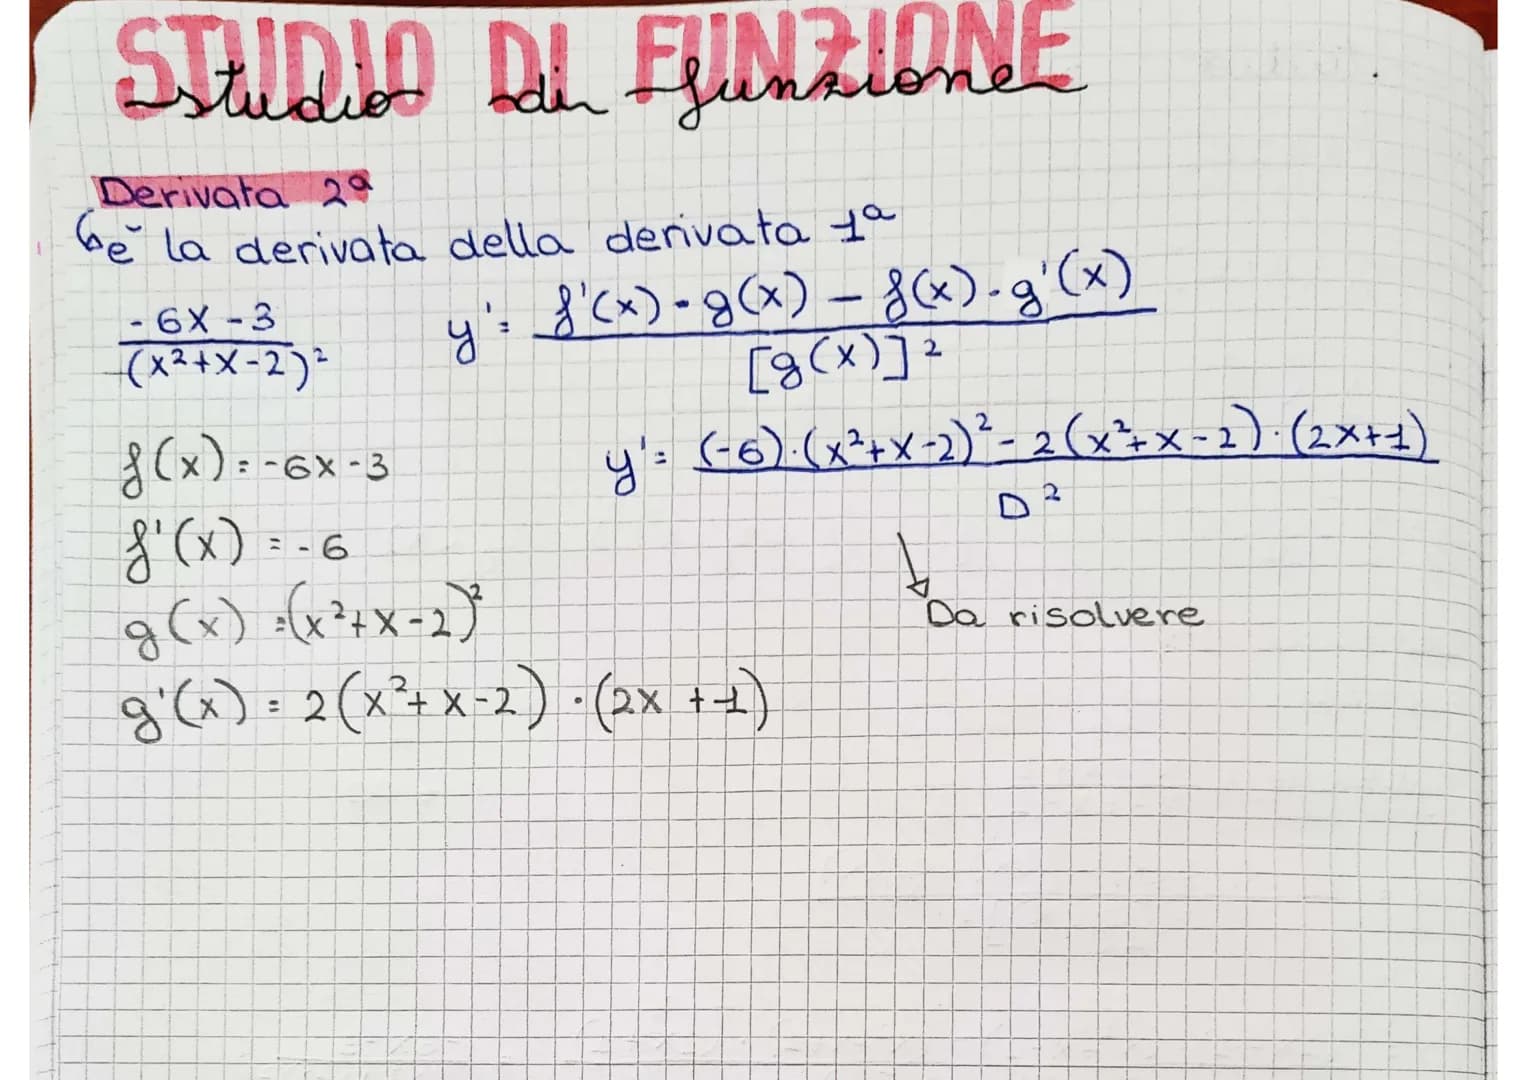 STUDIO DI FUNZIONE
studio di funzione
Derivata 2ª
↳ è la derivata della derivata 1ª
-6x-3 / (x²+x-2)²
y' = f'(x)·g(x) - f(x)·g'(x) / [g(x)]²
f(x) = -6x-3
y' = (-6)·(x²+x-2)² - 2(x²+x-2)·(2x+1) / D²
f'(x) = -6
Da risolvere
g(x) = (x²+x-2)²
g'(x) = 2(x²+x-2)·(2x+1)